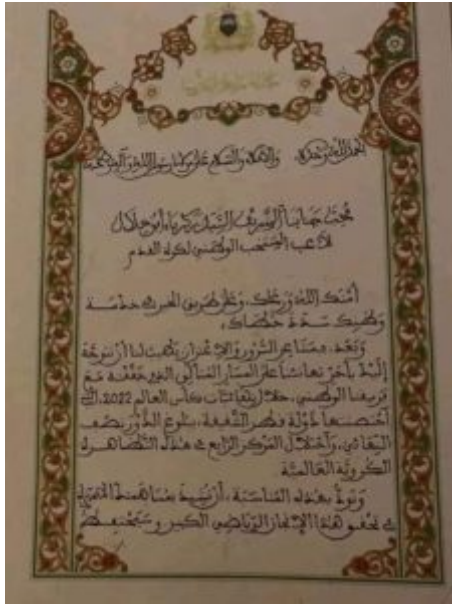 الحمد لله وحده، والصلاة والسلام على مولانا رسول الله وآله وصحبه
محب جنابنا الشريف السيد زكرياء أبو خلال
لاعب المنتخب الوطني لكرة القدم
أمنك الله ورعاك، وعلى طريق الخير
وبعد، فمنا بحر السرور والاعتزاز، يطيب لنا أن نتوجه
إليك بأحر تهانئنا على المسار المثالي الذي حققته مع
فريقنا الوطني، خلال نهائيات كأس العالم 2022، التي
احتضنتها دولة قطر الشقيقة، ببلوغ الدور نصف
النهائي، واحتلال المركز الرابع في هذه التظاهرة
الكروية العالمية
ونود بهذه المناسبة، أن نشيد بمساهمتك
في تحقيق هذا الإنجاز الرياضي الكبير